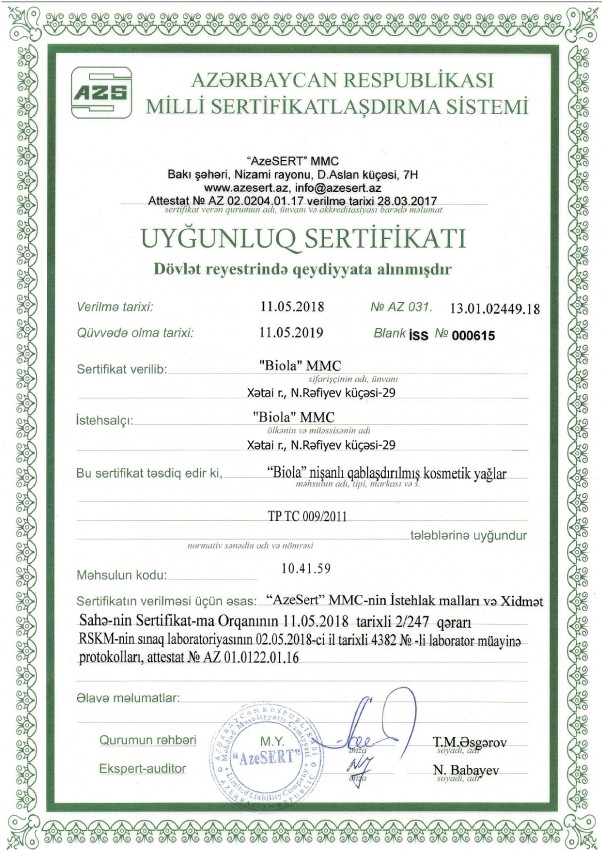 AZS
AZƏRBAYCAN RESPUBLİKASI
MİLLİ SERTİFİKATLAŞDIRMA SİSTEMİ
“AzeSERT” MMC
Bakı şəhəri, Nizami rayonu, D.Aslan küçəsi, 7H
www.azesert.az, info@azesert.az
Attestat № AZ 02.0204.01.17 verilmə tarixi 28.03.2017
sertifikat verən qurumun adı, ünvanı və akkreditasiyası barədə məlumat
UYĞUNLUQ SERTİFİKATI
Dövlət reyestrində qeydiyyata alınmışdır
Verilmə tarixi: 11.05.2018 № AZ 031. 13.01.02449.18
Qüvvədə olma tarixi: 11.05.2019 Blank İSS № 000615
Sertifikat verilib: "Biola" MMC
sifarişçinin adı, ünvanı
Xətai r., N.Rəfiyev küçəsi-29
İstehsalçı: "Biola" MMC
ölkənin və müəssisənin adı
Xətai r., N.Rəfiyev küçəsi-29
Bu sertifikat təsdiq edir ki, “Biola” nişanlı qablaşdırılmış kosmetik yağlar
məhsulun adı, tipi, markası və s.
TP TC 009/2011
tələblərinə uyğundur
normativ sənədin adı və nömrəsi
Məhsulun kodu: 10.41.59
Sertifikatın verilməsi üçün əsas: “AzeSert” MMC-nin İstehlak malları və Xidmət
Sahə-nin Sertifikat-ma Orqanının 11.05.2018 tarixli 2/247 qərarı
RSKM-nin sınaq laboratoriyasının 02.05.2018-ci il tarixli 4382 № -li laborator müayinə
protokolları, attestat № AZ 01.0122.01.16
Əlavə məlumatlar:
Qurumun rəhbəri M.Y. imza T.M.Əsgərov
soyadı, adı
Ekspert-auditor imza N. Babayev
soyadı, adı
AZƏRBAYCAN RESPUBLİKASI
Məhdud Məsuliyyətli Cəmiyyəti
"AzeSERT"
Limited Liability Company